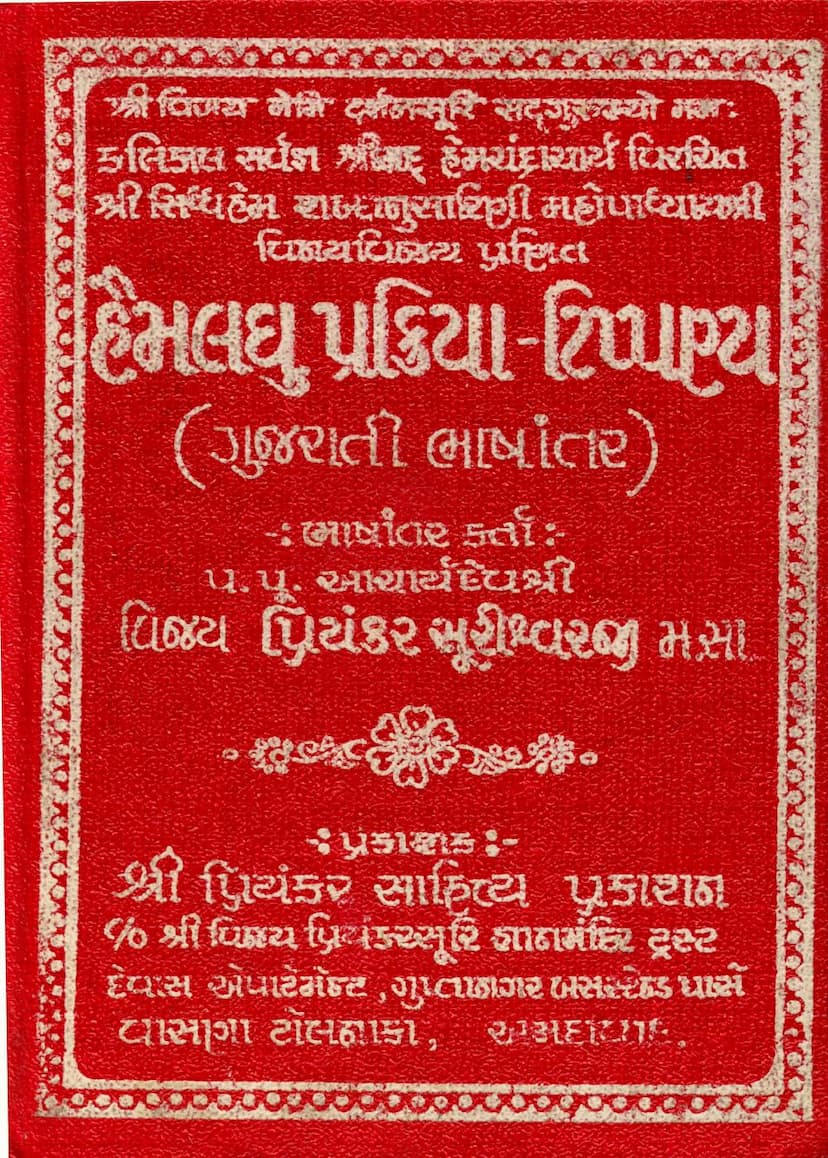 શ્રી વિજય નેમિ દર્શનસૂરિ સદ્ગુરુભ્યો નમઃ
કલિકાલ સર્વજ્ઞ શ્રીમદ્ હેમચંદ્રાચાર્ય વિરચિત
શ્રી સિધ્ધહેમ શબ્દાનુસારિણી મહોપાધ્યાયશ્રી
વિનયવિજય પ્રણિત
હૈમલઘુ પ્રક્રિયા-ટિપ્પણ્ય
(ગુજરાતી ભાષાંતર)
-: ભાષાંતર કર્તા :-
પ.પૂ. આચાર્યદેવશ્રી
વિજય પ્રિયંકર સૂરીશ્વરજી મ.સા.
-: પ્રકાશક :-
શ્રી પ્રિયંકર સાહિત્ય પ્રકાશન
C/o શ્રી વિજય પ્રિયંકરસૂરિ જ્ઞાનમંદિર ટ્રસ્ટ
દેવાસ એપાર્ટમેન્ટ, ગુપ્તાનગર બસસ્ટેન્ડ પાસે
વાસાણા ટોલનાકા, અમદાવાદ.